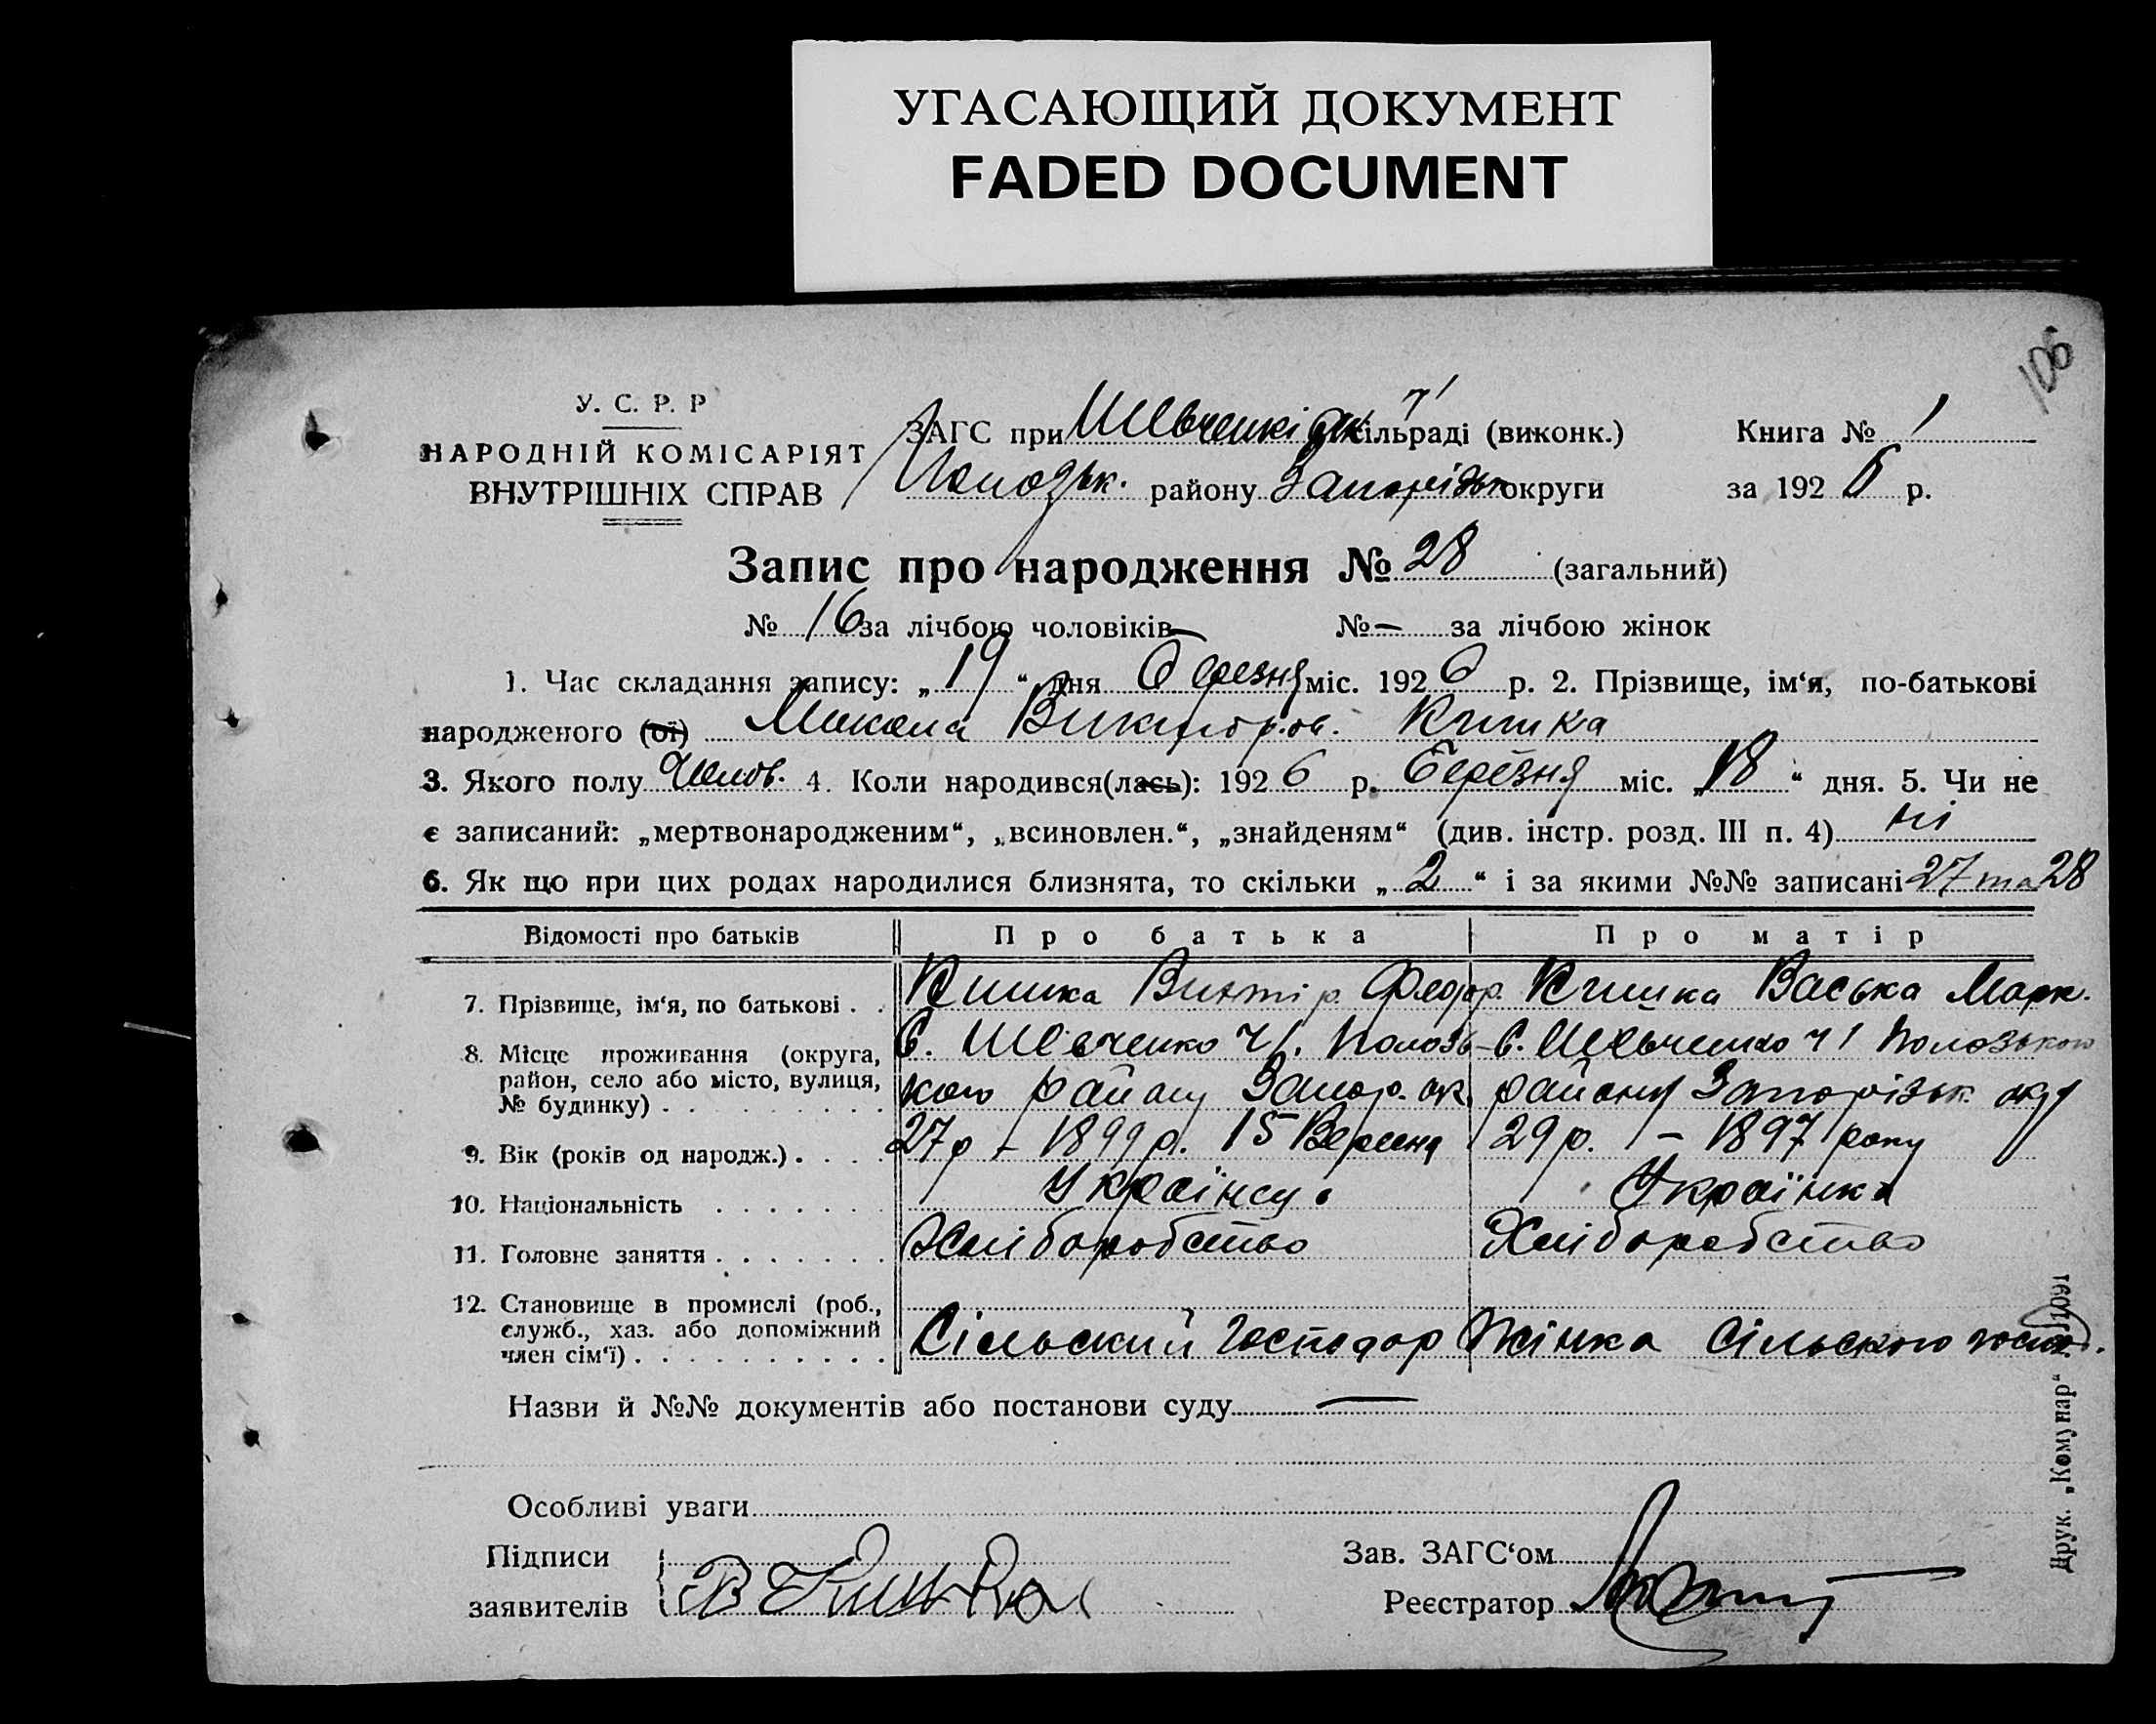 УГАСАЮЩИЙ ДОКУМЕНТ
FADED DOCUMENT
106
У. С. Р. Р
НАРОДНІЙ КОМІСАРІЯТ
ВНУТРІШНІХ СПРАВ
ЗАГС при Шевченківськ. ч1 сільраді (виконк.)
Полозьк. району Запорізьк округи
Книга № 1
за 1926 р.
Запис про народження № 28 (загальний)
№ 16 за лічбою чоловіків — № — за лічбою жінок
1. Час складання запису: „19“ дня березня міс. 1926 р. 2. Прізвище, ім‘я, по-батькові
народженого (ої) Микола Викторов. Кишка
3. Якого полу Чолов. 4. Коли народився(лась): 1926 р. березня міс. „18“ дня. 5. Чи не
є записаний: „мертвонародженим“, „всиновлен.“, „знайденям“ (див. інстр. розд. III п. 4) ні
6. Як що при цих родах народилися близнята, то скільки „2“ і за якими №№ записані 27 та 28
Відомості про батьків Про батька Про матір
7. Прізвище, ім‘я, по батькові . . Кишка Виктір Федор. Кишка Васька Марк.
8. Місце проживання (округа, район, село або місто, вулиця, № будинку) . . . . . . . . .
С. Шевченко ч1. Полозь-
кого району Запор. ок.
С. Шевченко ч1 Полозького
району Запорізьк. окр
9. Вік (років од народж.) . . . . 27 р – 1899 р. 15 Вересня 29 р. – 1897 року
10. Національність . . . . . . . Українець Українка
11. Головне заняття . . . . . . . Хліборобство Хліборобство
12. Становище в промислі (роб., служб., хаз. або допоміжний член сім‘ї) . . . . . . . . . .
Сільский Господор Жінка Сільского госп.
Назви й №№ документів або постанови суду —
Особливі уваги
Підписи
заявителів
В Кишка
Зав. ЗАГС‘ом
Реєстратор
Друк. „Комунар“ 11091